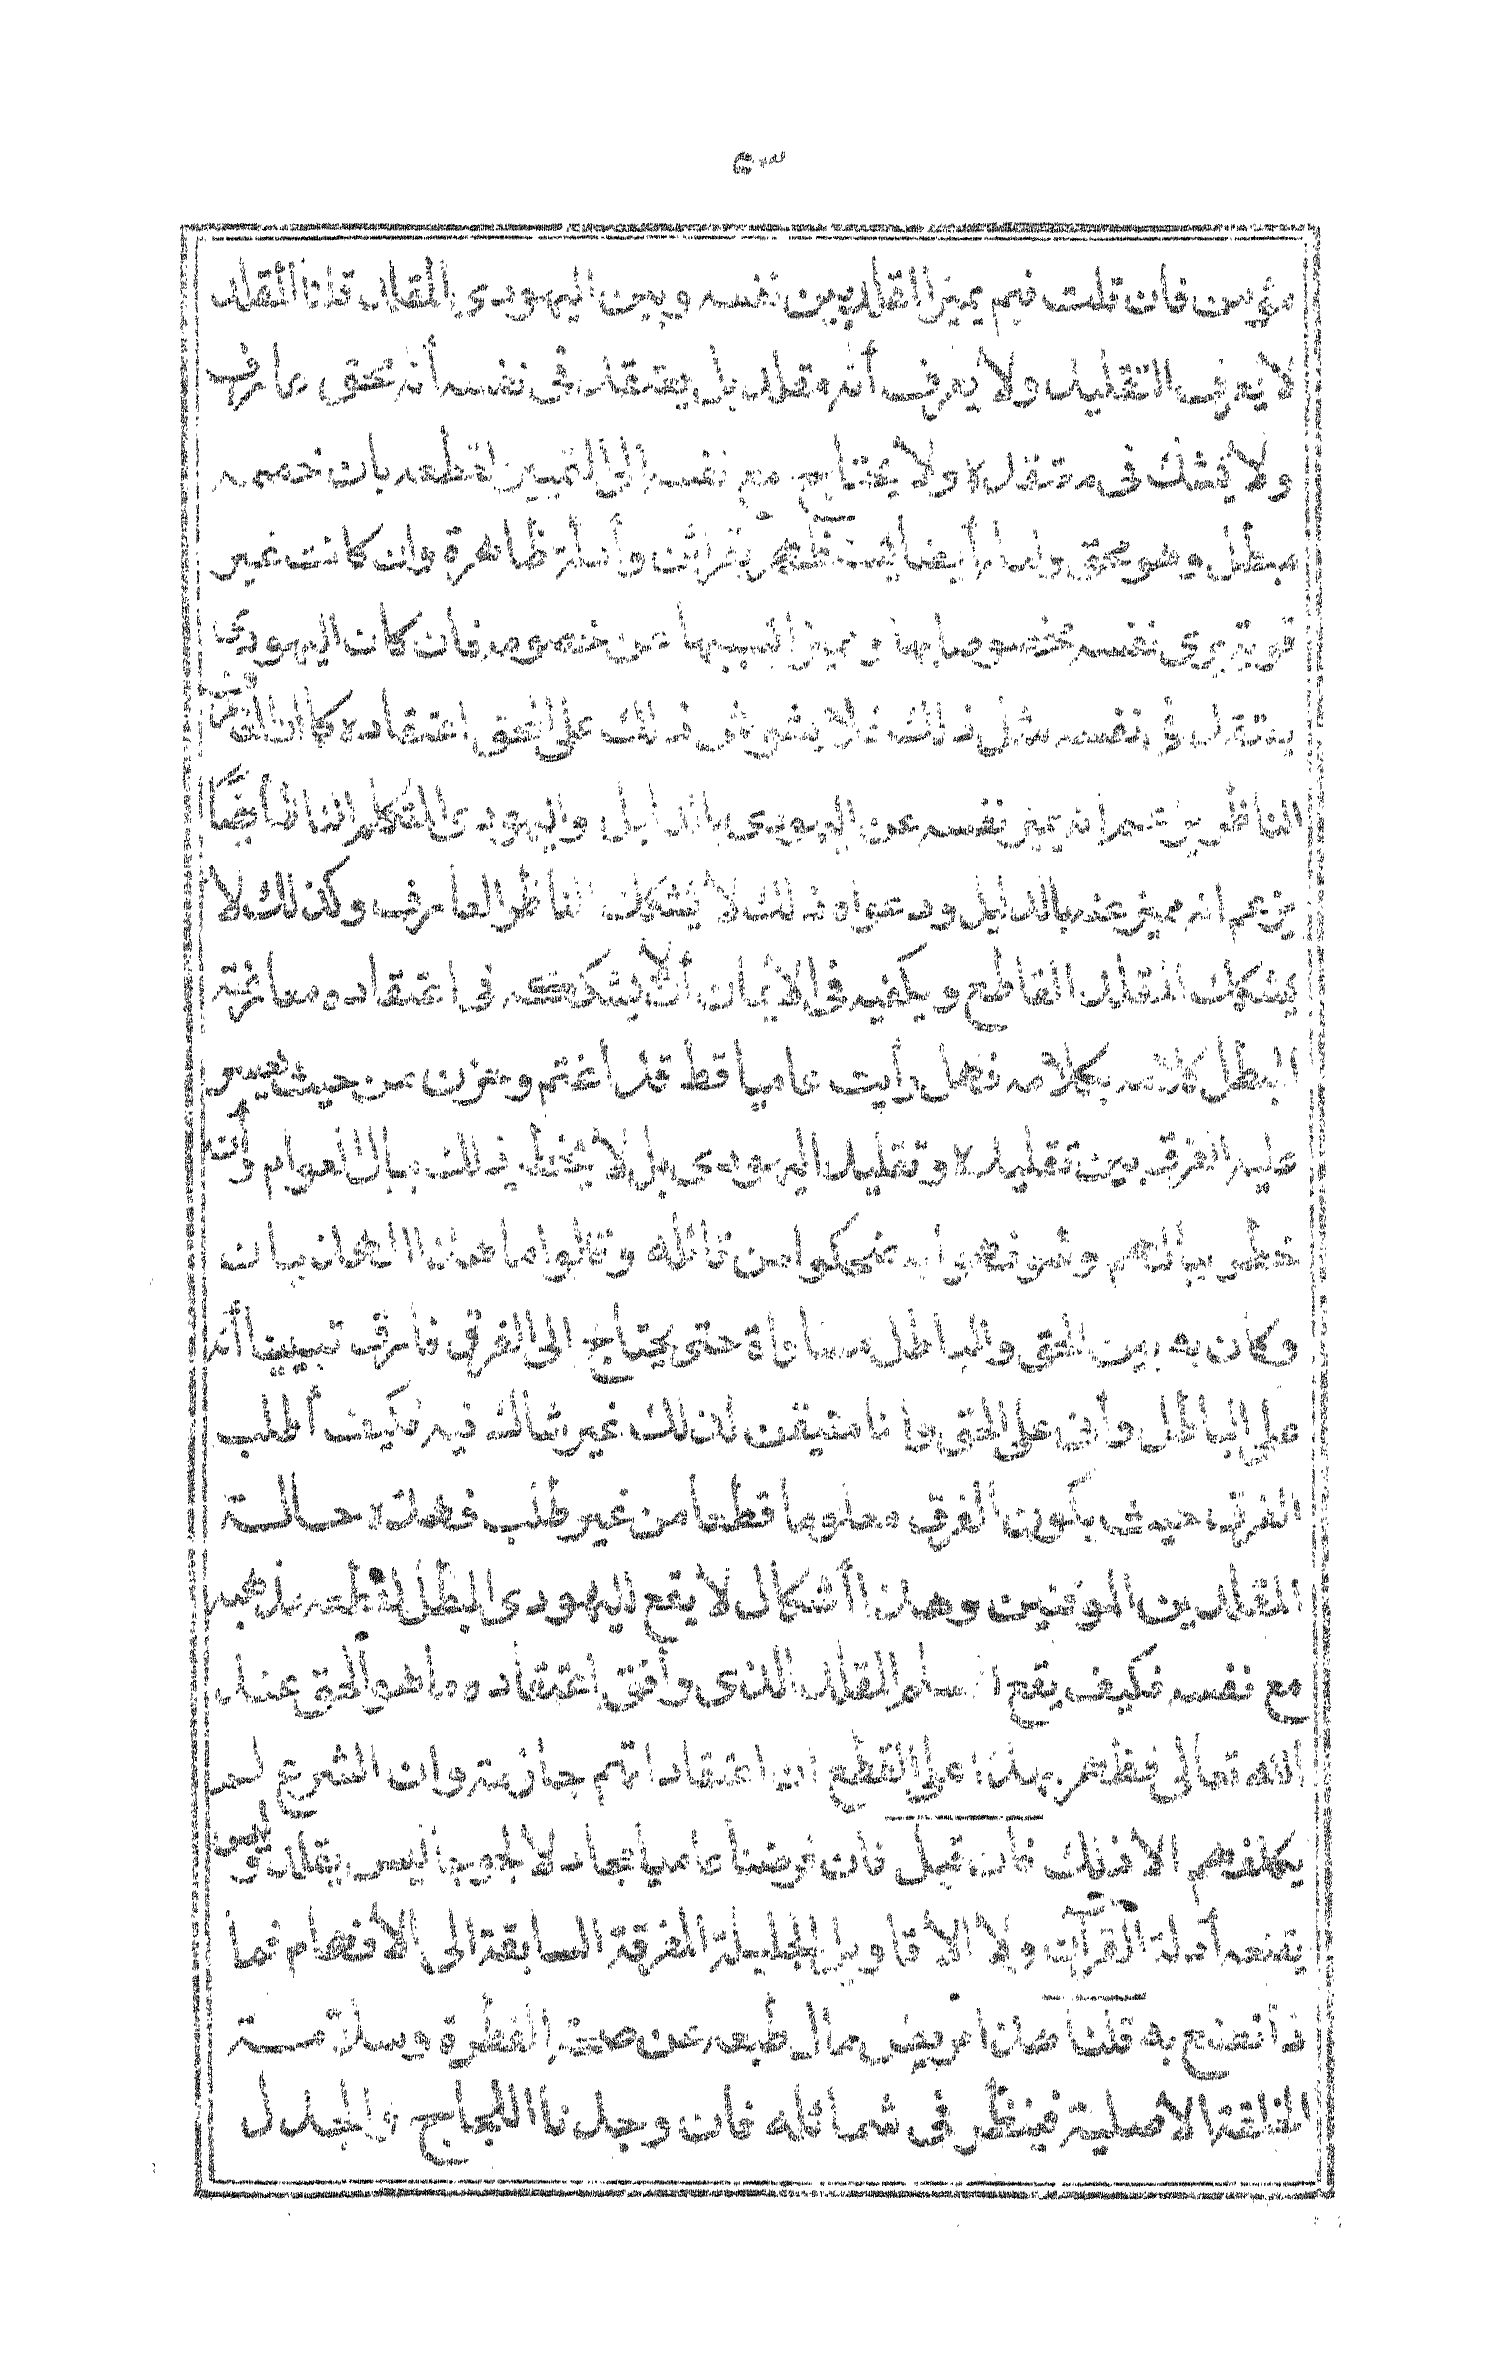 ٥٣
مؤمن فان قلت فبم يميز المقلد بين نفسه وبين اليهودى المقلد قلنا المقلد
لا يعرف التقليد ولا يعرف أنه مقلد بل يعتقد فى نفسه أنه محق عارف
ولا يشك فى معتقده ولا يحتاج مع نفسه الى التمييز لقطعه بان خصمه
مبطل وهو محق ولعله أيضا يستظهر بقرائن وأدلة ظاهرة وان كانت غير
قوية يرى نفسه مخصوصا بها ومميزا بسببها عن خصومه فان كان اليهودى
يعتقد فى نفسه مثل ذلك فلا يشوش ذلك على المحق اعتقاده كما ان العارف
الناظر يزعم انه يميز نفسه عن اليهودى بالدليل واليهودى المتكلم الناظر أيضًا
يزعم انه مميز عنه بالدليل ودعواه ذلك لا يشكك الناظر العارف وكذلك لا
يشكك المقلد القاطع ويكفيه فى الايمان أن لا يشككه فى اعتقاده معارضة
المبطل كلامه بكلامه فهل رأيت عاميا قط قد اغتم وحزن من حيث يعسر
عليه الفرق بين تقليده وتقليد اليهودى بل لا يخطر ذلك ببال العوام وان
خطر ببالهم وشوفهوا به ضحكوا من قائله وقالوا ما هذا الهذيان
وكان به بين الحق والباطل مساواة حتى يحتاج الى الفرق فارق تبيينا أنه
على الباطل وأنى على الحق وانا متيقن لذلك غير شاك فيه فكيف أطلب
الفرق حيث يكون الفرق معلوما قطعا من غير طلب فهذه حالة
المقلدين الموقنين وهذا اشكال لا يقع لليهودى المبطل لقطعه بمذهبه
مع نفسه فكيف يقع المسلم المقلد الذى وافق اعتقاده ما هو الحق عند
الله تعالى فظهر بهذا على القطع ان اعتقاداتهم جازمة وان الشرع لم
يكلفهم الا ذلك فان قيل فان فرضنا عاميا مجادلا لجوجا ليس يقلد وليس
يقنعه أدلة القرآن ولا الاقاويل الجليلة المفرقة السابقة الى الأفهام فما
ذا تصنع به قلنا هذا مريض مال طبعه عن صحة الفطرة وسلامة
الخلقة الاصلية فينظر فى شمائله فان وجدنا اللجاج والجدل